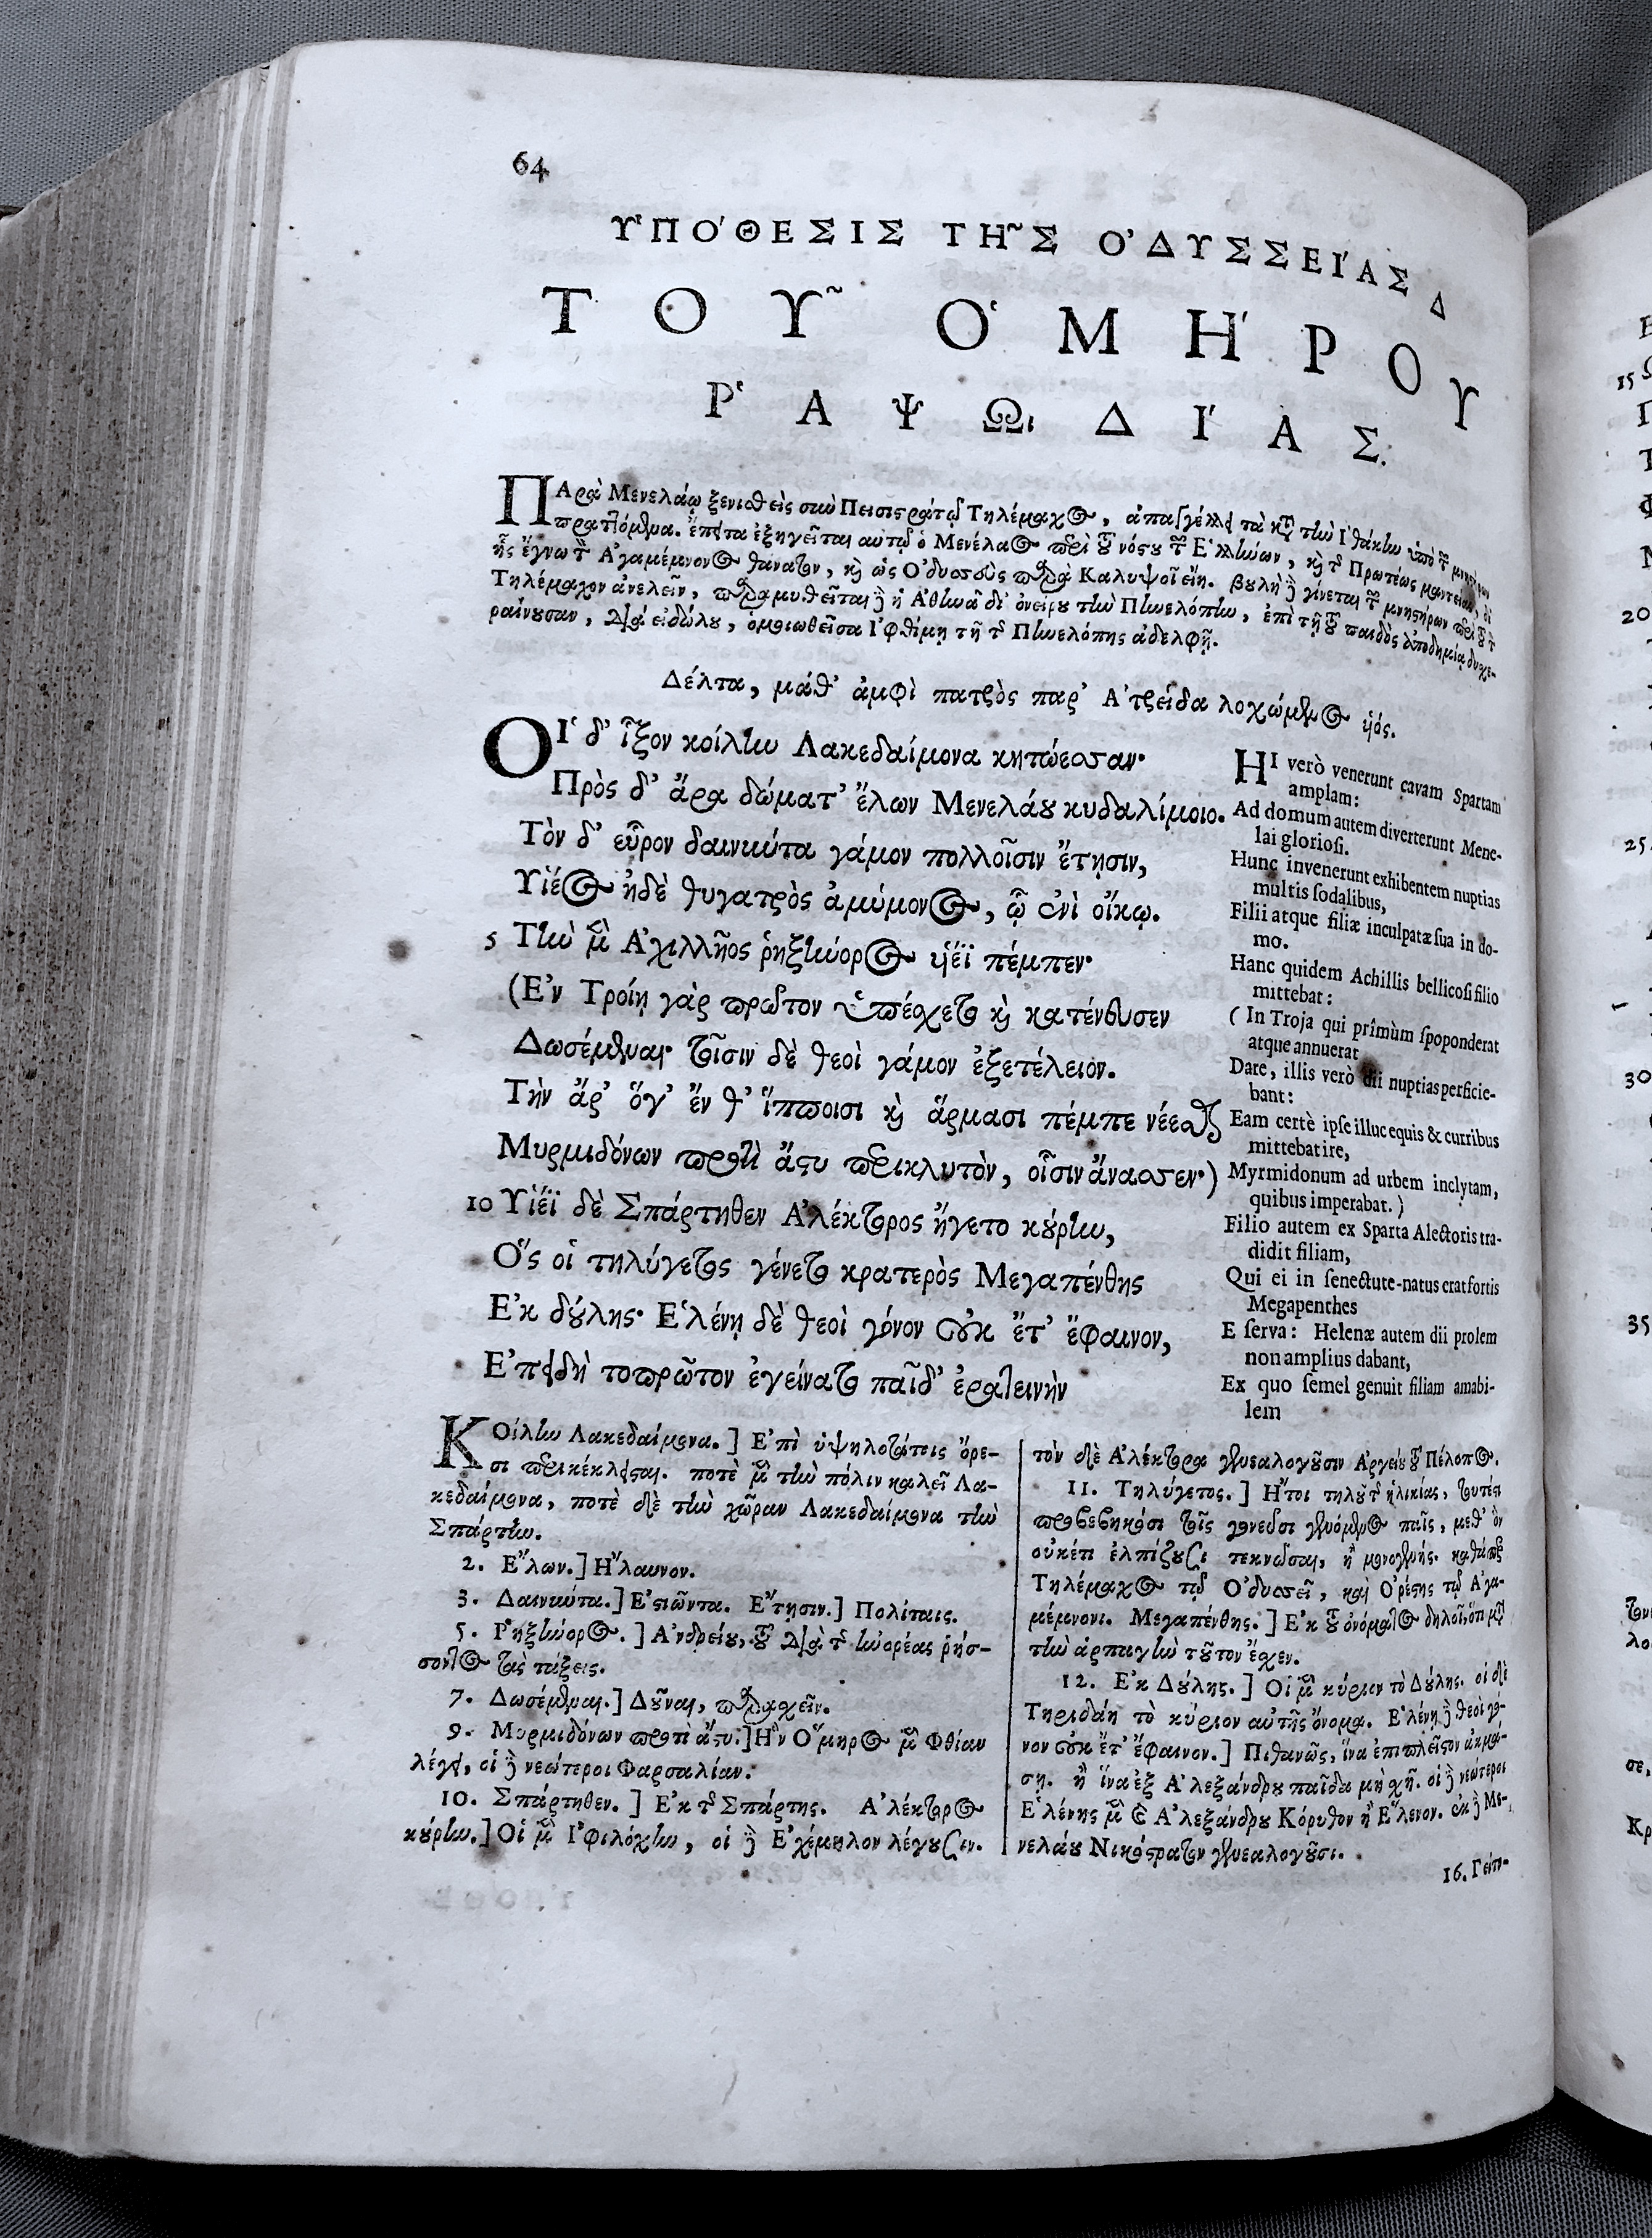 64
ΥΠΟ´ΘΕΣΙΣ ΤΗ~Σ Ο᾿ΔΥΣΣΕΙ´ΑΣ Δ
ΤΟΥ~ Ο῾ΜΗ´ΡΟΥ
Ρ῾ΑΨΩΙΔΙ´ΑΣ.
ΠΑρὰ Μενελάῳ ξενισθεὶς σὺν Πεισιστράτῳ Τηλέμαχος, ἀπαγγέλλει τὰ κατὰ τὴν Ἰθάκην ὑπὸ τῶν μνηστήρων
πραττόμενα. ἔπειτα ἐξηγεῖται αὐτῷ ὁ Μενέλαος περὶ τοῦ νόστου τῶν Ἑλλήνων, καὶ τῆς Πρωτέως μαντείας, δι᾽
ἧς ἔγνω τὸν Ἀγαμέμνονος θάνατον, καὶ ὡς Ὀδυσσεὺς παρὰ Καλυψοῖ εἴη. βουλὴ δὲ γίνεται τῶν μνηστήρων περὶ τοῦ τὸν
Τηλέμαχον ἀνελεῖν, παραμυθεῖται δὲ ἡ Ἀθηνᾶ δι᾽ ὀνείρου τὴν Πηνελόπην, ἐπὶ τῇ τοῦ παιδὸς ἀποδημίᾳ δυσχε-
ραίνουσαν, διὰ εἰδώλου, ὁμοιωθεῖσα Ἰφθίμῃ τῇ τῆς Πηνελόπης ἀδελφῇ.
Δέλτα, μάθ᾽ ἀμφὶ πατρὸς παρ᾽ Ἀτρείδα λοχώμενος υἱός.
ΟΙ῾ δ᾽ ἷξον κοίλην Λακεδαίμονα κητώεσσαν·
Πρὸς δ᾽ ἄρα δώματ᾽ ἔλων Μενελάου κυδαλίμοιο.
Τὸν δ᾽ εὗρον δαινύντα γάμον πολλοῖσιν ἔτῃσιν,
Υἱέος ἠδὲ θυγατρὸς ἀμύμονος, ᾧ ἐνὶ οἴκῳ.
5 Τὴν μὲν Ἀχιλλῆος ῥηξήνορος υἱέϊ πέμπεν·
(Ἐν Τροίῃ γὰρ πρῶτον ὑπέσχετο καὶ κατένευσεν
Δωσέμεναι· τοῖσιν δὲ θεοὶ γάμον ἐξετέλειον.
Τὴν ἄρ᾽ ὅγ᾽ ἔνθ᾽ ἵπποισι καὶ ἅρμασι πέμπε νέεσθαι
Μυρμιδόνων προτὶ ἄστυ περικλυτὸν, οἷσιν ἄνασσεν·)
10 Υἱέϊ δὲ Σπάρτηθεν Ἀλέκτορος ἤγετο κούρην,
Ὅς οἱ τηλύγετος γένετο κρατερὸς Μεγαπένθης
Ἐκ δούλης· Ἑλένῃ δὲ θεοὶ γόνον οὐκ ἔτ᾽ ἔφαινον,
Ἐπειδὴ τοπρῶτον ἐγείνατο παῖδ᾽ ἐρατεινὴν
HI verò venerunt cavam Spartam
amplam:
Ad domum autem diverterunt Mene-
lai gloriosi.
Hunc invenerunt exhibentem nuptias
multis sodalibus,
Filii atque filiæ inculpatæ sua in do-
mo.
Hanc quidem Achillis bellicosi filio
mittebat:
( In Troja qui prîmùm spoponderat
atque annuerat
Dare, illis verò dii nuptias perficie-
bant:
Eam certè ipse illuc equis & curribus
mittebat ire,
Myrmidonum ad urbem inclytam,
quibus imperabat.)
Filio autem ex Sparta Alectoris tra-
didit filiam,
Qui ei in senectute-natus erat fortis
Megapenthes
E serva: Helenæ autem dii prolem
non amplius dabant,
Ex quo semel genuit filiam amabi-
lem
ΚΟίλην Λακεδαίμονα.] Ἐπὶ ὑψηλοτάτοις ὄρε-
σι περικέκλεισται. ποτὲ μὲν τὴν πόλιν καλεῖ Λα-
κεδαίμονα, ποτὲ δὲ τὴν χῶραν Λακεδαίμονα τὴν
Σπάρτην.
2. Ἔλων.] Ἤλαυνον.
3. Δαινύντα.] Ἑστιῶντα. Ἔτῃσιν.] Πολίταις.
5. Ῥηξήνορος.] Ἀνδρείου, τοῦ διὰ τῆς ἠνορέας ῥήσ-
σοντος τὰς τάξεις.
7. Δωσέμεναι.] Δοῦναι, παρασχεῖν.
9. Μυρμιδόνων προτὶ ἄστυ.] Ἣν Ὅμηρος μὲν Φθίαν
λέγει, οἱ δὲ νεώτεροι Φαρσαλίαν.
10. Σπάρτηθεν.] Ἐκ τῆς Σπάρτης. Ἀλέκτορος
κούρην.] Οἱ μὲν Ἰφιλόχην, οἱ δὲ Ἐχέμηλον λέγουσιν.
τὸν δὲ Ἀλέκτορα γενεαλογοῦσιν Ἀργείου τοῦ Πέλοπος.
11. Τηλύγετος.] Ἤτοι τηλοῦ τῆς ἡλικίας, τουτέστι
προβεβηκόσι τοῖς γονεῦσι γενόμενος παῖς, μεθ᾽ ὃν
οὐκέτι ἐλπίζουσι τεκνῶσαι, ἢ μονογενής. καθάπερ
Τηλέμαχος τῷ Ὀδυσσεῖ, καὶ Ὀρέστης τῷ Ἀγα-
μέμνονι. Μεγαπένθης.] Ἐκ τοῦ ὀνόματος δηλοῖ, ὅτι μετὰ
τὴν ἁρπαγὴν τοῦτον ἔσχεν.
12. Ἐκ Δούλης.] Οἱ μὲν κύριον τὸ Δούλης. οἱ δὲ
Τηριδάη τὸ κύριον αὐτῆς ὄνομα. Ἑλένῃ δὲ θεοὶ γό-
νον οὐκ ἔτ᾽ ἔφαινον.] Πιθανῶς, ἵνα ἐπιπλεῖστον ἀκμά-
σῃ. ἢ ἵνα ἐξ Ἀλεξάνδρου παῖδα μὴ σχῇ. οἱ δὲ νεώτεροι
Ἑλένης μὲν καὶ Ἀλεξάνδρου Κόρυθον ἢ Ἕλενον. ἐκ δὲ Με-
νελάου Νικόστρατον γενεαλογοῦσι.
16. Γείτο-